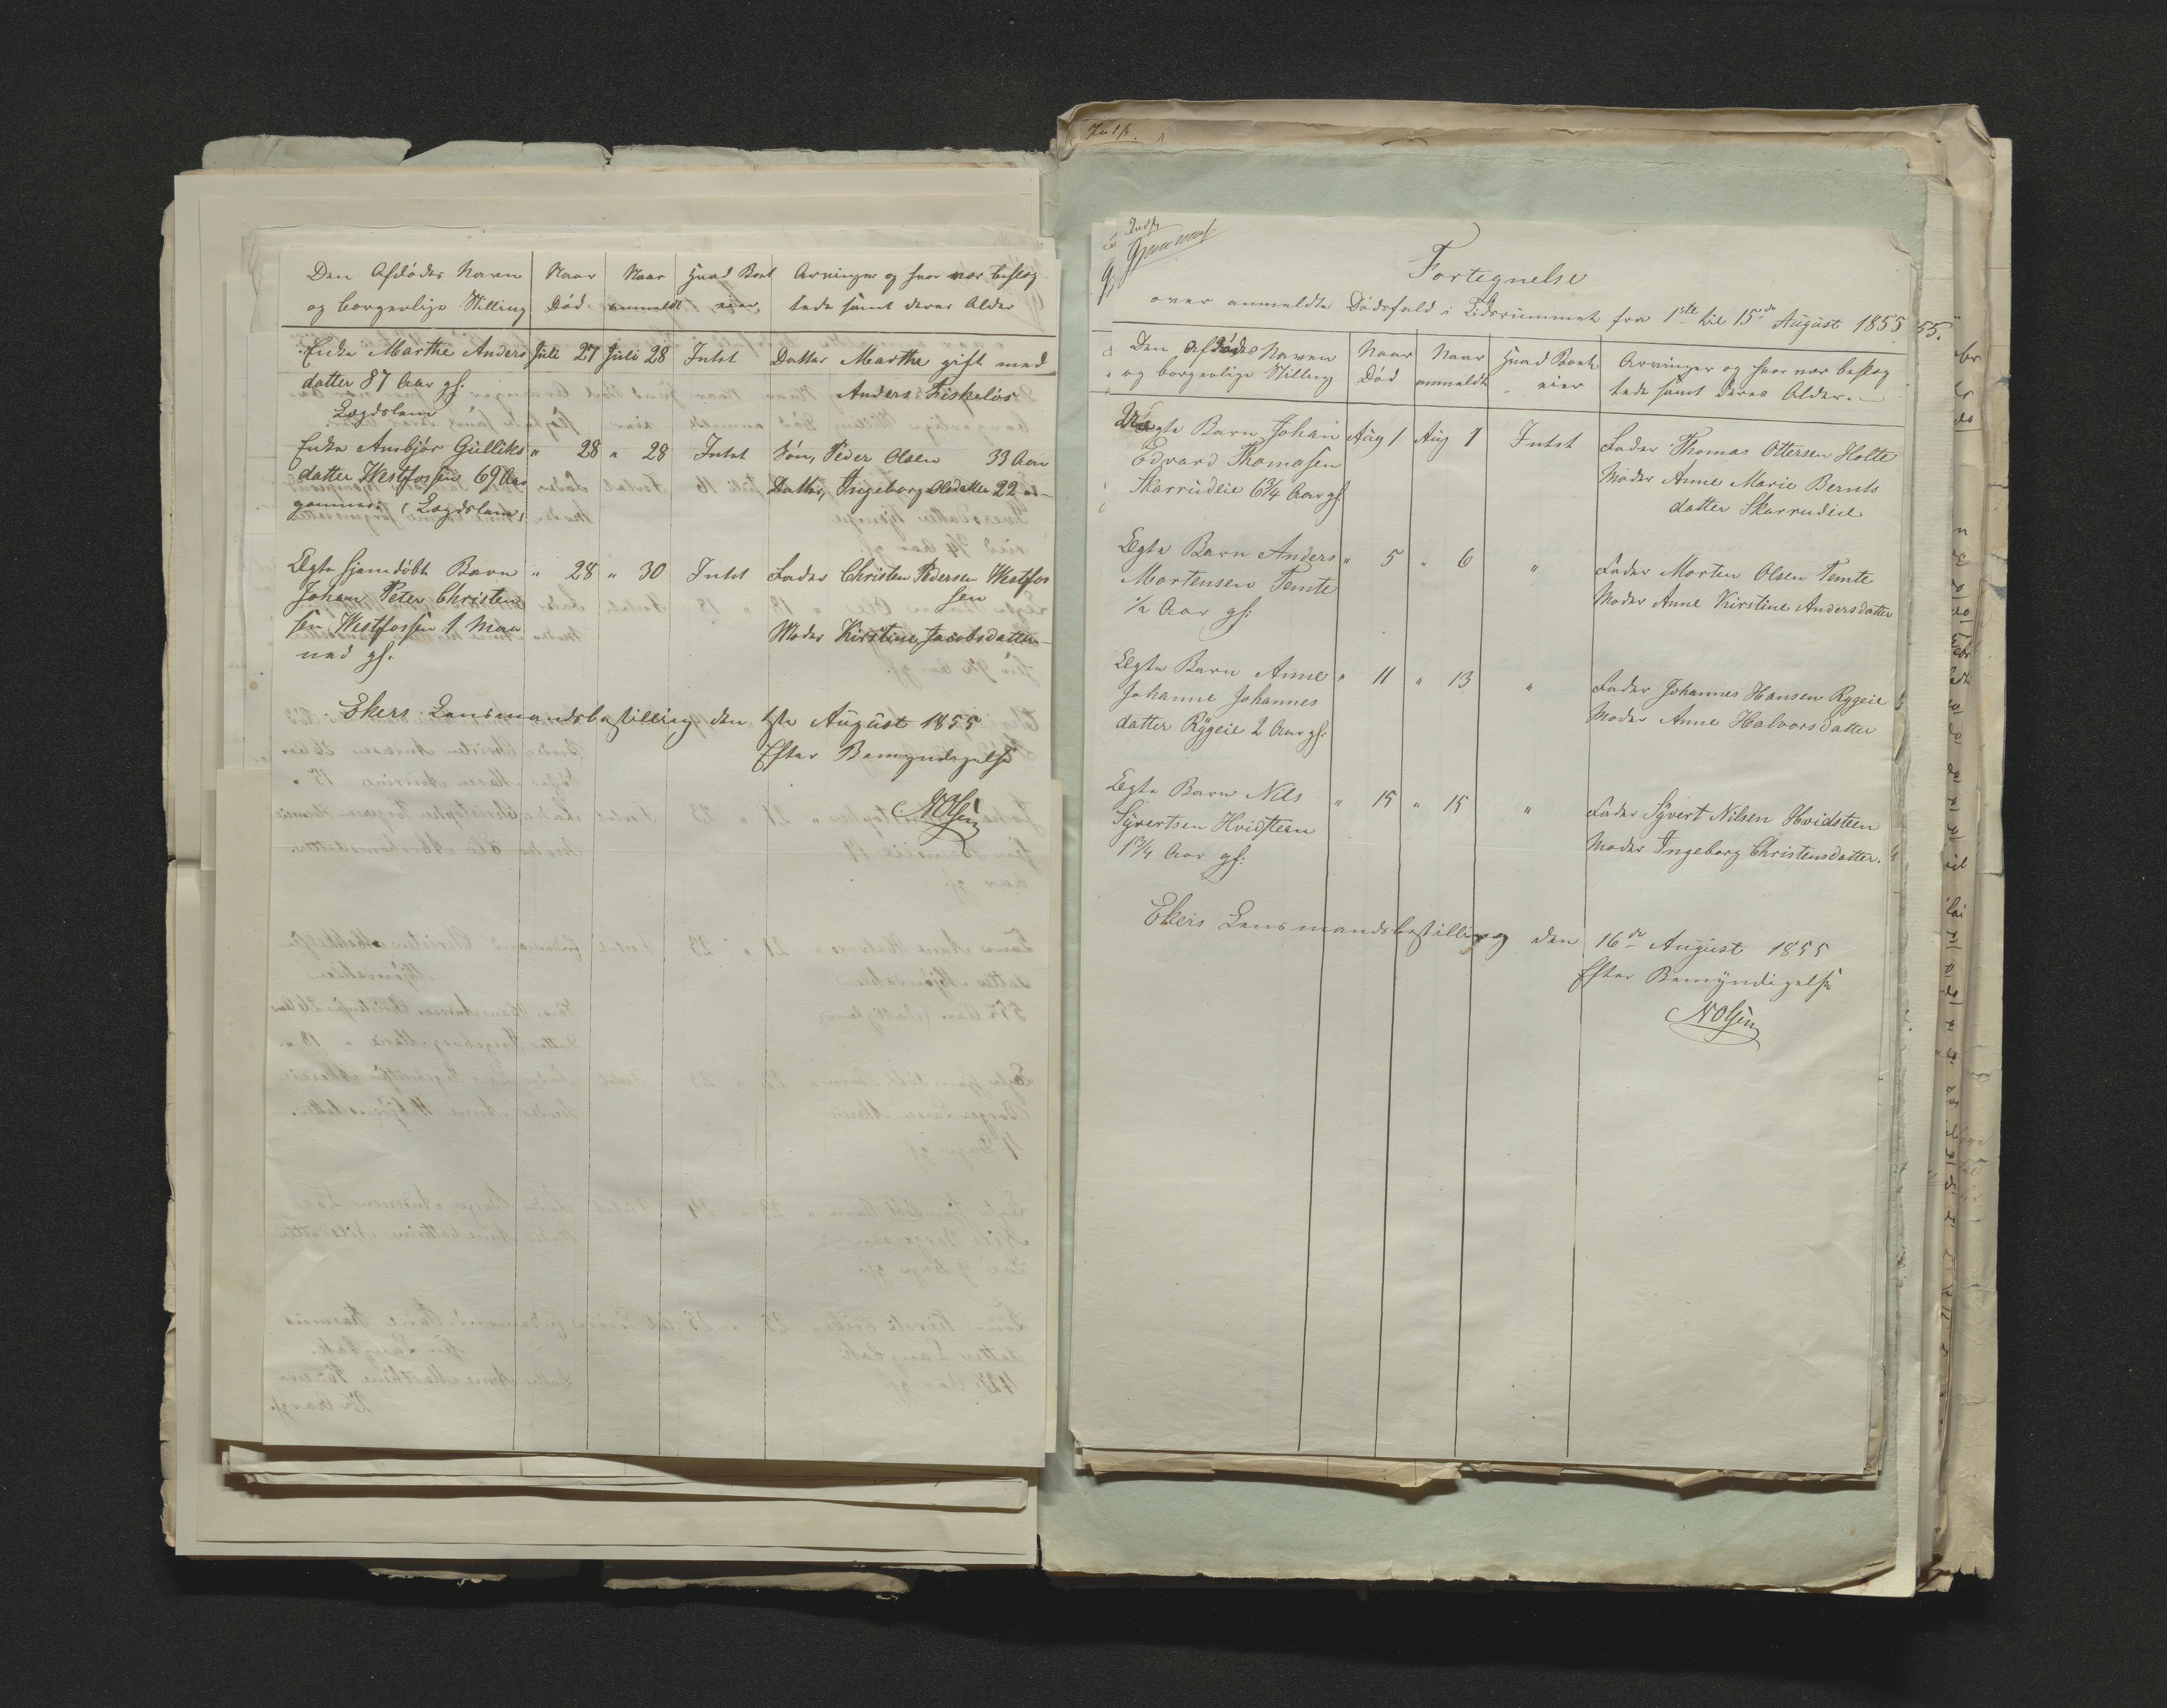 Den Afdødes Navn
og borgerlige Stilling
Naar
Død
Naar
anmeldt
Hvad Boet
eier
Arvinger og hvor nær beslæg
tede samt deres Alder
Enke Marthe Anders
datter 87 Aar gl:
Lægdslem
Juli 27
Juli 28
Intet
Datter Marthe gift med
Anders Fiskeløs
Enke Ambjør Gulliks
datter Westfossen 69 Aar
gammel: (Lægdslem)
" 28
" 28
Intet
Søn, Peder Olsen 33 Aar
Datter, Ingeborg Olsdatter 22 "
Ægte hjemdøbt Barn
Johan Peter Christen
sen Westfossen 1 Maa
ned gl.
" 28
" 30
Intet
Fader Christen Pedersen Westfos
sen
Moder Kirstine Jacobsdatter
Ekers Lensmandsbestilling den 1ste August 1855
Efter Bemyndigelse
NOlsen
Fortegnelse
over anmeldte Dødsfald i Tidsrummet fra 1ste til 15de August 1855
55.
Den Afdødes Navn
og borgerlige Stilling
Naar
Død
Naar
anmeldt
Hvad Boet
eier
Arvinger og hvor nær beslæg
tede samt deres Alder.
Uægte Barn Johan
Edvard Thomasen
Skarrudeie 6¾ Aar gl.
Aug 1
Aug 1
Intet
Fader Thomas Ottersen Holte
Moder Anne Marie Bernts
datter Skarrudeie
Ægte Barn Anders
Mortensen Temte
½ Aar gl:
" 5
" 6
"
Fader Morten Olsen Temte
Moder Anne Kirstine Andersdatter
Ægte Barn Anne
Johanne Johannes
datter Rygeie 2 Aar gl:
" 11
" 13
"
Fader Johannes Hansen Rygeie
Moder Anne Halvorsdatter
Ægte Barn Nils
Syvertsen Hvidsteen
1¾ Aar gl:
" 15
" 15
"
Fader Syvert Nilsen Hvidsteen
Moder Ingeborg Christensdatter.
Ekers Lensmandsbestilling den 16de August 1855
Efter Bemyndigelse
NOlsen